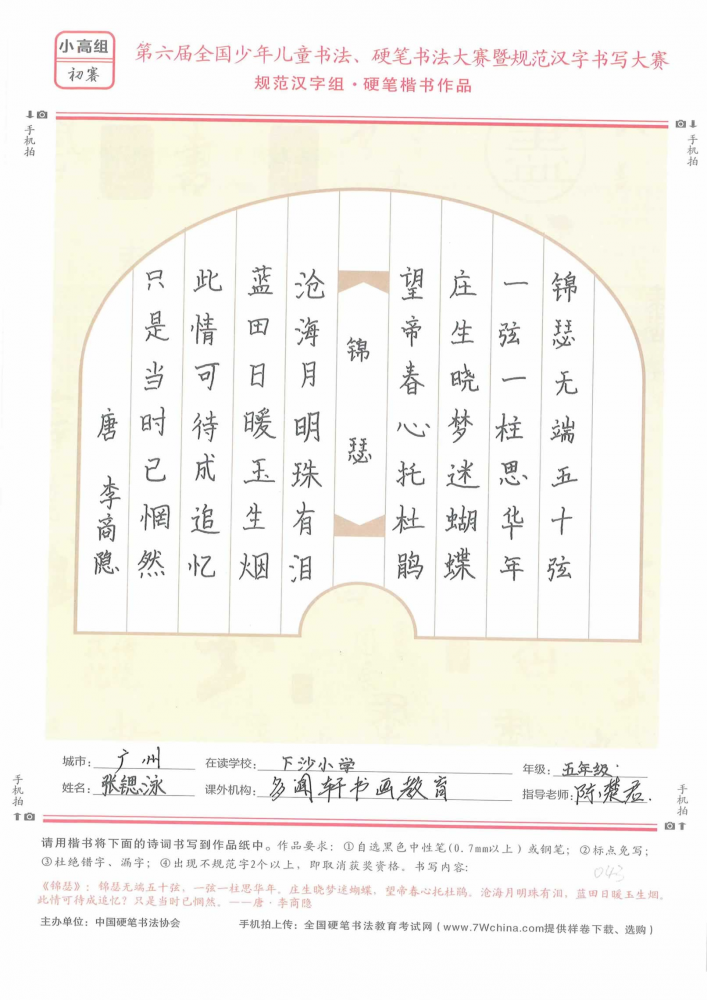 小高组
初赛
第六届全国少年儿童书法、硬笔书法大赛暨规范汉字书写大赛
规范汉字组·硬笔楷书作品
手机拍
手机拍
锦瑟无端五十弦
一弦一柱思华年
庄生晓梦迷蝴蝶
望帝春心托杜鹃
锦瑟
沧海月明珠有泪
蓝田日暖玉生烟
此情可待成追忆
只是当时已惘然
唐 李商隐
手机拍
手机拍
城市：广州 在读学校：下沙小学 年级：五年级
姓名：张锶泳 课外机构：多闻轩书画教育 指导老师：陈楚君.
请用楷书将下面的诗词书写到作品纸中。作品要求：①自选黑色中性笔(0.7mm以上)或钢笔；②标点免写；
③杜绝错字、漏字；④出现不规范字2个以上，即取消获奖资格。书写内容：
043
《锦瑟》：锦瑟无端五十弦，一弦一柱思华年。庄生晓梦迷蝴蝶，望帝春心托杜鹃。沧海月明珠有泪，蓝田日暖玉生烟。
此情可待成追忆？只是当时已惘然。——唐·李商隐
主办单位：中国硬笔书法协会 手机拍上传：全国硬笔书法教育考试网（www.7Wchina.com提供样卷下载、选购）